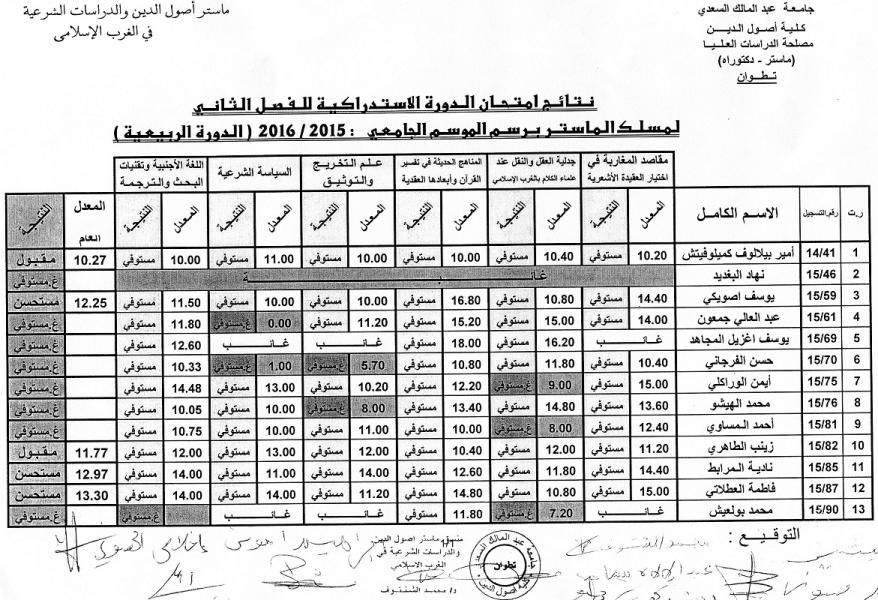 جامعة عبد المالك السعدي
كلية أصول الدين
مصلحة الدراسات العليا
(ماستر - دكتوراه)
تطوان
ماستر أصول الدين والدراسات الشرعية
في الغرب الإسلامي
نتائج امتحان الدورة الاستدراكية للفصل الثاني
لمسلك الماستر برسم الموسم الجامعي : 2015 / 2016 ( الدورة الربيعية )
مقاصد المغاربة في اختيار العقيدة الأشعرية
جدلية العقل والنقل عند علماء الكلام بالغرب الإسلامي
المناهج الحديثة في تفسير القرآن وأبعادها العقدية
علم التخريج والتوثيق
السياسة الشرعية
اللغة الأجنبية وتقنيات البحث والترجمة
ر.ت رقم التسجيل الاسم الكامل المعدل النتيجة المعدل النتيجة المعدل النتيجة المعدل النتيجة المعدل النتيجة المعدل النتيجة المعدل العام النتيجة
1 14/41 أمير بيلالوف كميلوفيتش 10.20 مستوفي 10.40 مستوفي 10.00 مستوفي 10.00 مستوفي 11.00 مستوفي 10.00 مستوفي 10.27 مقبول
2 15/46 نهاد البغديد غائب غ.مستوفي
3 15/59 يوسف اصويكي 14.40 مستوفي 10.80 مستوفي 16.80 مستوفي 10.00 مستوفي 10.00 مستوفي 11.50 مستوفي 12.25 مستحسن
4 15/61 عبد العالي جمعون 14.00 مستوفي 15.00 مستوفي 15.20 مستوفي 11.20 مستوفي 0.00 غ.مستوفي 11.80 مستوفي غ.مستوفي
5 15/69 يوسف اغزيل المجاهد غائب 16.20 مستوفي 18.00 مستوفي غائب غائب 12.60 مستوفي غ.مستوفي
6 15/70 حسن الفرجاني 10.40 مستوفي 11.80 مستوفي 10.80 مستوفي 5.70 غ.مستوفي 1.00 غ.مستوفي 10.33 مستوفي غ.مستوفي
7 15/75 أيمن الوراكلي 15.00 مستوفي 9.00 غ.مستوفي 12.20 مستوفي 10.20 مستوفي 13.00 مستوفي 14.48 مستوفي غ.مستوفي
8 15/76 محمد الهيشو 13.60 مستوفي 14.80 مستوفي 13.40 مستوفي 8.00 غ.مستوفي 10.00 مستوفي 10.05 مستوفي غ.مستوفي
9 15/81 أحمد المساوي 12.40 مستوفي 8.00 غ.مستوفي 10.00 مستوفي 11.00 مستوفي 10.00 مستوفي 10.75 مستوفي غ.مستوفي
10 15/82 زينب الطاهري 11.20 مستوفي 12.00 مستوفي 10.40 مستوفي 12.00 مستوفي 13.00 مستوفي 12.00 مستوفي 11.77 مقبول
11 15/85 نادية المرابط 14.40 مستوفي 11.80 مستوفي 12.60 مستوفي 14.00 مستوفي 11.00 مستوفي 14.00 مستوفي 12.97 مستحسن
12 15/87 فاطمة العطلاتي 15.00 مستوفي 10.80 مستوفي 14.80 مستوفي 11.20 مستوفي 14.00 مستوفي 14.00 مستوفي 13.30 مستحسن
13 15/90 محمد بولعيش غائب 7.20 غ.مستوفي 11.80 مستوفي غائب غائب غ.مستوفي غ.مستوفي
التوقيع :
منسق ماستر اصول الدين
والدراسات الشرعية في
الغرب الاسلامي
د/ محمد الشنتوف
جامعة عبد المالك السعدي
تطوان
كلية أصول الدين